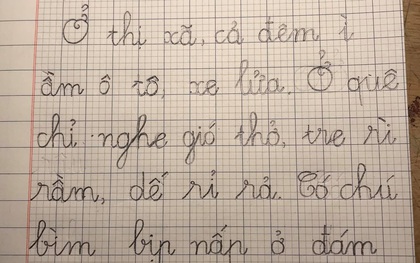 Ở thị xã, cả đêm ì
ầm ô tô, xe lửa. Ở quê
chỉ nghe gió thổ, tre rì
rầm, dế rỉ rả. Có chú
bìm bịp nấp ở đám